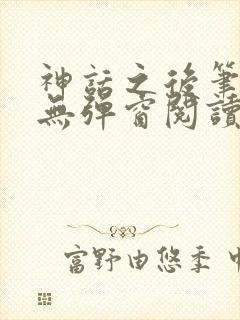 神話之後筆
無彈窗閱讀
富野由悠季